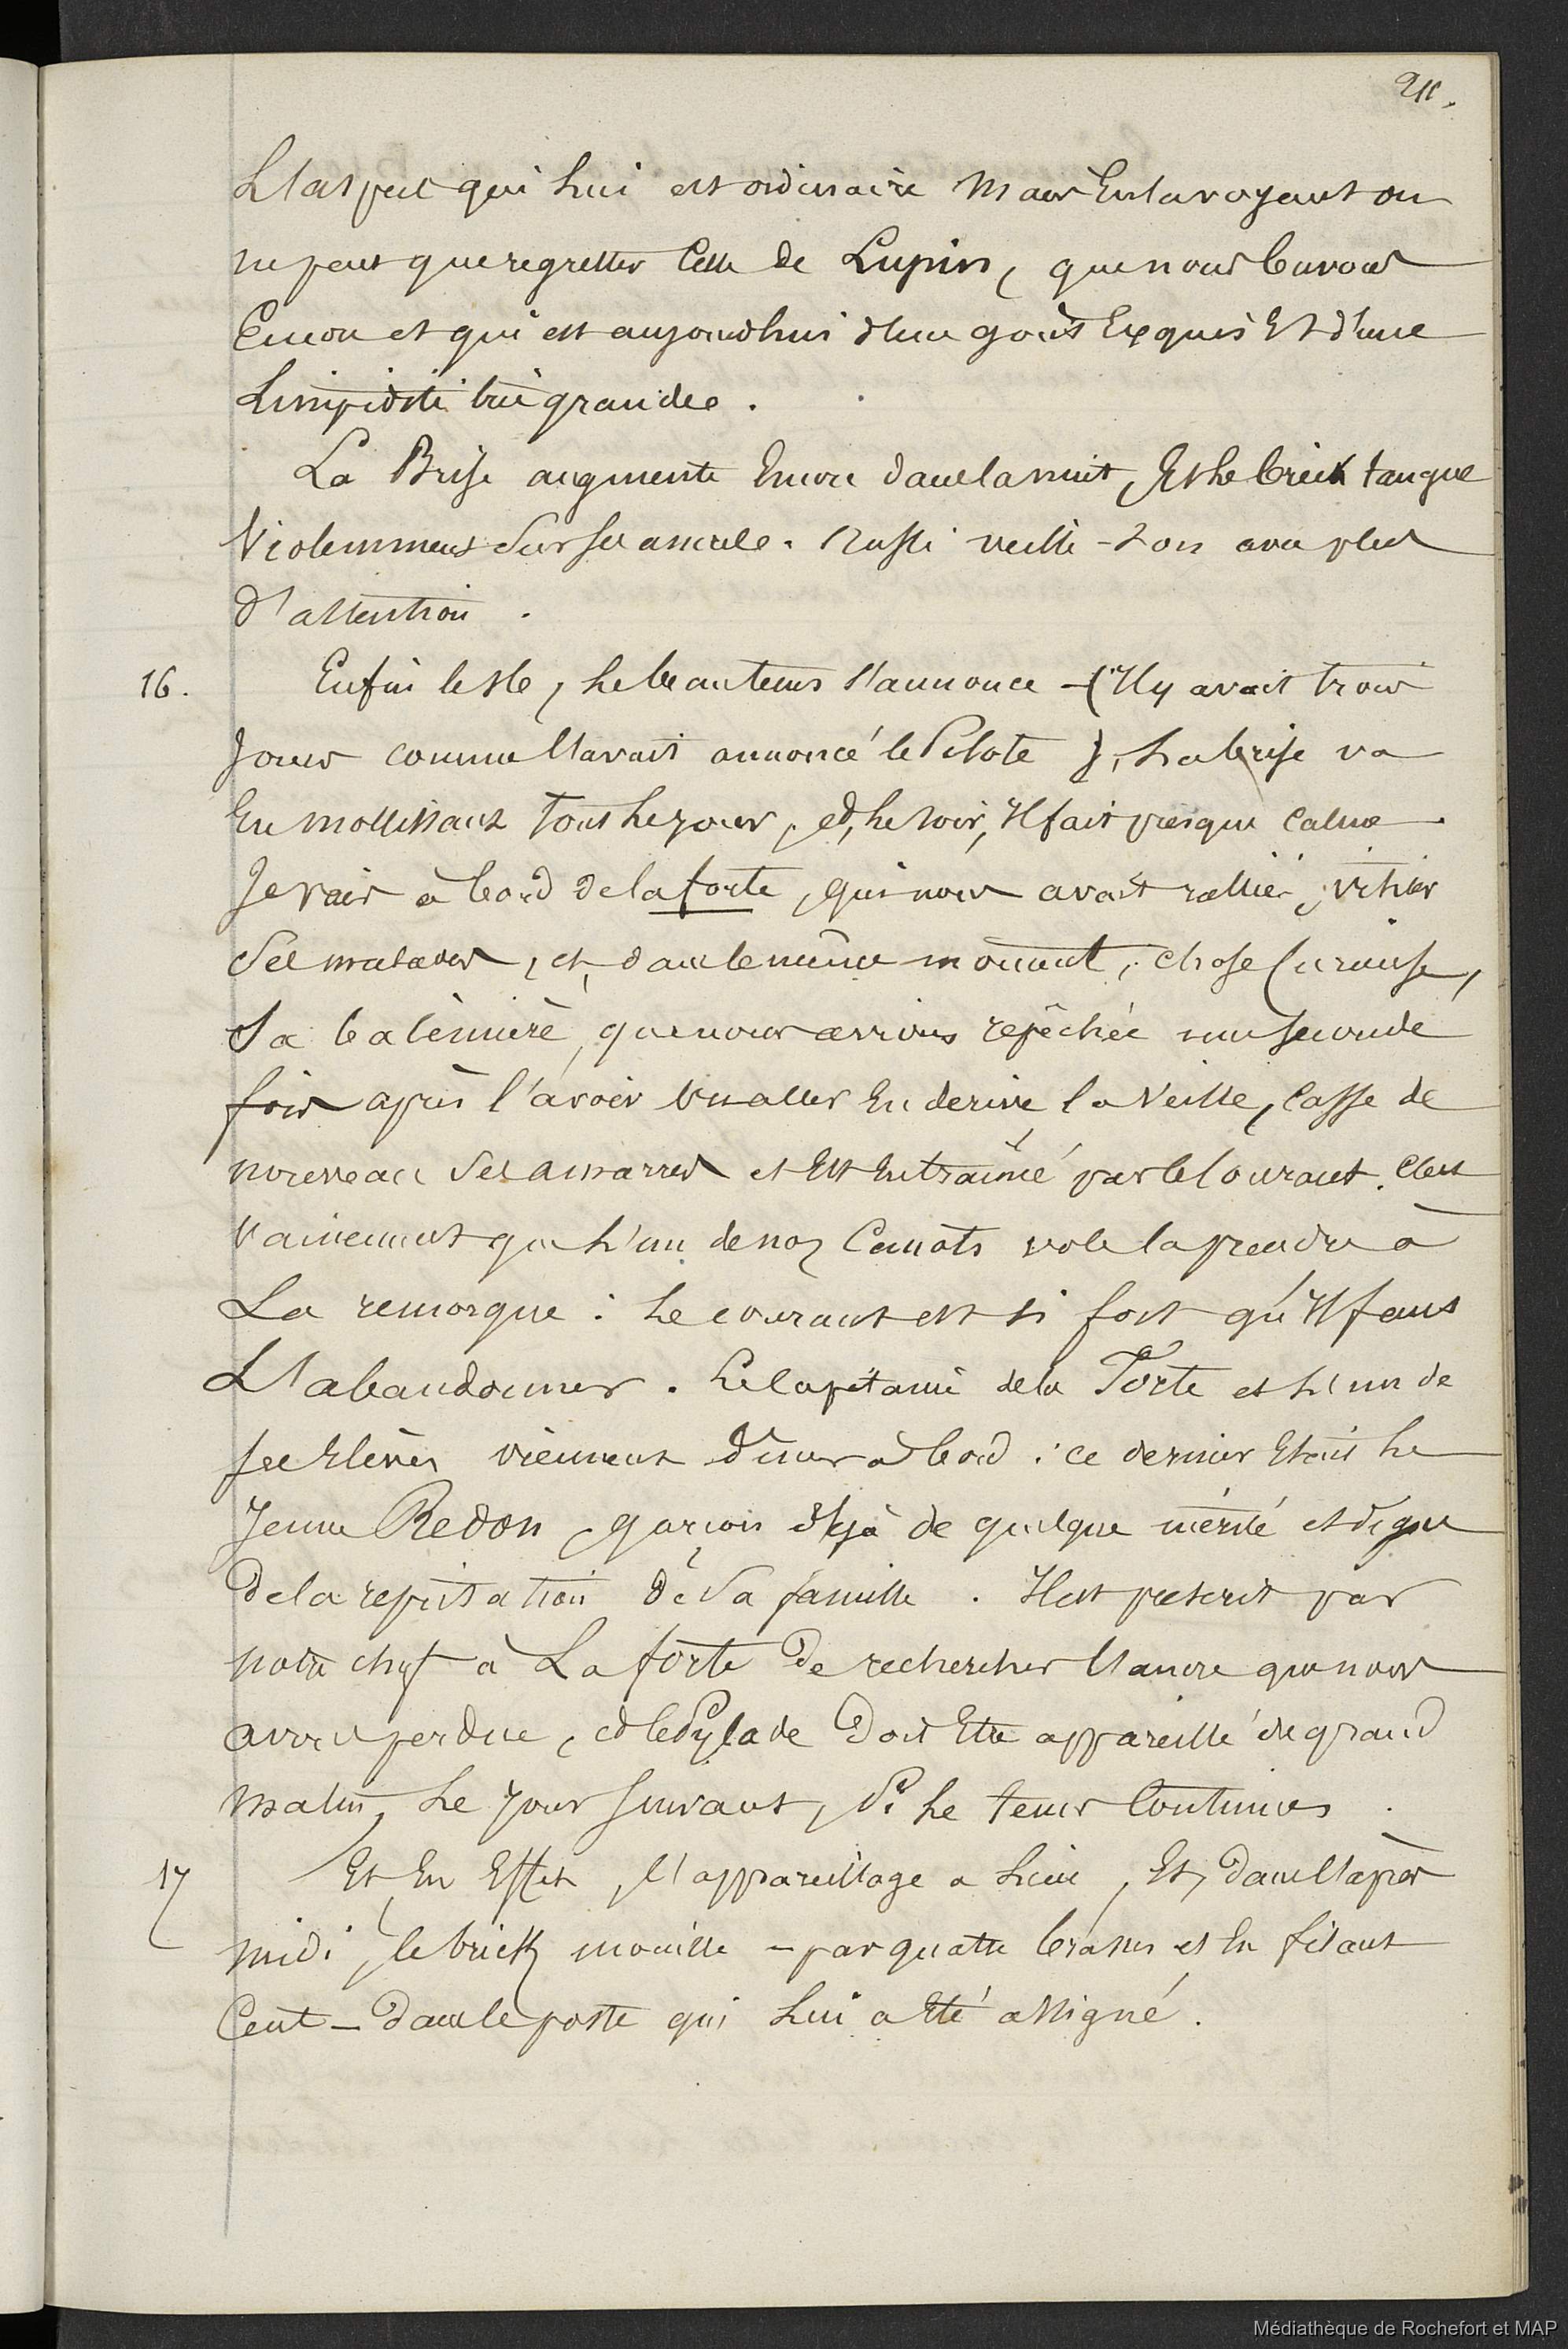 211.
L'aspect qui lui est ordinaire mais en la voyant on
ne peut que regretter celle de Lupin, que nous buvons
encore et qui est aujourd'hui d'un goût exquis et d'une
limpidité très grande.
La Brise augmente encore dans la nuit, et le brick tangue
violemment sur son ancre. Aussi veille-t-on avec plus
d'attention.
16. Enfin le 16, le beau tems s'annonce - (Il y avait trois
jours comme l'avait annoncé le Pilote), la brise va
en mollissant tout le jour, et, le soir, il fait presque calme.
Je vais à bord de la forte, qui nous avait rallié, visiter
ses malades, et, dans le même moment, chose curieuse,
sa baleinière, que nous avions repêchée une seconde
fois après l'avoir vu aller en dérive la veille, casse de
nouveau ses amarres et est entraîné par le courant. C'est
vainement que l'un de nos canots vole la prendre à
la remorque : le courant est si fort qu'il faut
l'abandonner. Le Capitaine de la Forte et l'un de
ses élèves viennent dîner à bord : ce dernier était le
jeune Redon, garçon déjà de quelque mérite et digne
de la reputation de sa famille. Il est prescrit par
notre chef à La forte de rechercher l'ancre que nous
avons perdue, et le Pylade doit être appareillé de grand
matin, le jour suivant, si le tems continue.
17 Et en effet, l'appareillage a lieu, et, dans l'après
midi, le brick mouille - par quatre brasses et en filant
cent - dans le poste qui lui a été assigné.
Médiathèque de Rochefort et MAP